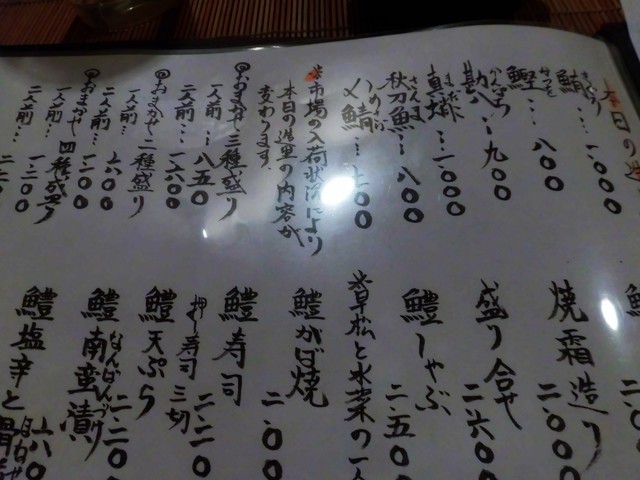 本日の造里
鯖 さば …一、〇〇〇
鰹 かつを … 八〇〇
勘八 かんぱち … 九〇〇
真蛸 まだこ … 一、〇〇〇
秋刀魚 さんま … 八〇〇
〆鯖 しめさば … 七〇〇
※市場の入荷状況により
本日の造里の内容が
変わります。
おまかせ三種盛り
一人前… 八五〇
二人前… 一六〇〇
おまかせ二種盛り
一人前… 六〇〇
二人前… 一一〇〇
おまかせ四種盛り
一人前… 一一〇〇
二人前…
焼霜造り 二、〇〇〇
盛り合せ 二、六〇〇
鱧しゃぶ 二、五〇〇
早松と水菜の
鱧がば焼 二、〇〇
鱧寿司 二、二〇
押し寿司 三切
鱧天ぷら
鱧南蛮漬 なんばんづけ 二、二〇〇
鱧塩辛と